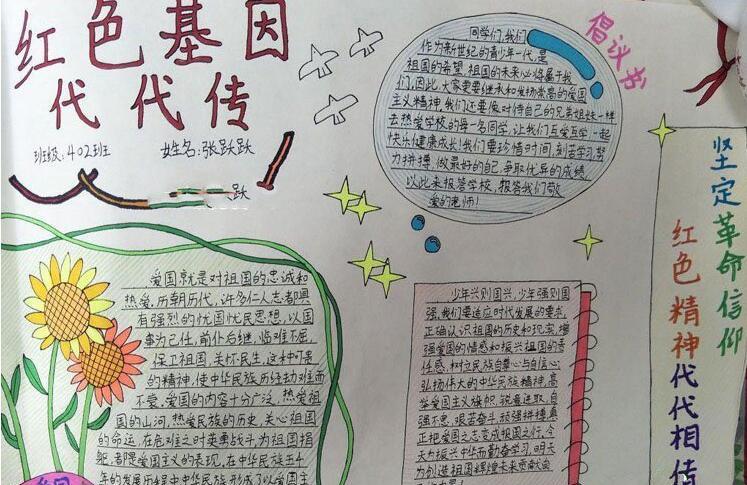 红色基因
代代传
班级:402班
姓名:张跃跃
跃
倡议书
同学们,我们
作为新世纪的青少年一代,是
祖国的希望,祖国的未来必将属于我
们,因此,大家更要继承和发扬崇高的爱国
主义精神,我们还要像对待自己的兄弟姐妹一样
去热爱学校的每一名同学,让我们互爱互学,一起
快乐健康成长!我们要珍惜时间,刻苦学习,努
力拼搏,做最好的自己,争取优异的成绩,
以此来报答学校,报答我们敬
爱的老师!
坚定革命信仰
红色精神代代相传
爱国就是对祖国的忠诚和
热爱,历朝历代,许多仁人志士都具
有强烈的忧国忧民思想,以国
事为己任,前仆后继,临难不屈,
保卫祖国,关怀民生,这种可贵
的精神,使中华民族历经劫难而
不衰,爱国的内容十分广泛,热爱祖
国的山河,热爱民族的历史,关心祖国
的命运,在危难之时英勇战斗,为祖国捐
躯,都是爱国主义的表现,在中华民族五千
年的发展历程中中华民族形成了以爱国主
少年兴则国兴,少年强则国
强,我们要适应时代发展的要求,
正确认识祖国的历史和现实,增
强爱国的情感和振兴祖国的责
任感,树立民族自尊心与自信心;
弘扬伟大的中华民族精神,高
举爱国主义旗帜,锐意进取,自
强不息,艰苦奋斗,顽强拼搏,真
正把爱国之志变成报国之行,今
天为振兴中华而勤奋学习,明天
为创造祖国辉煌未来贡献自